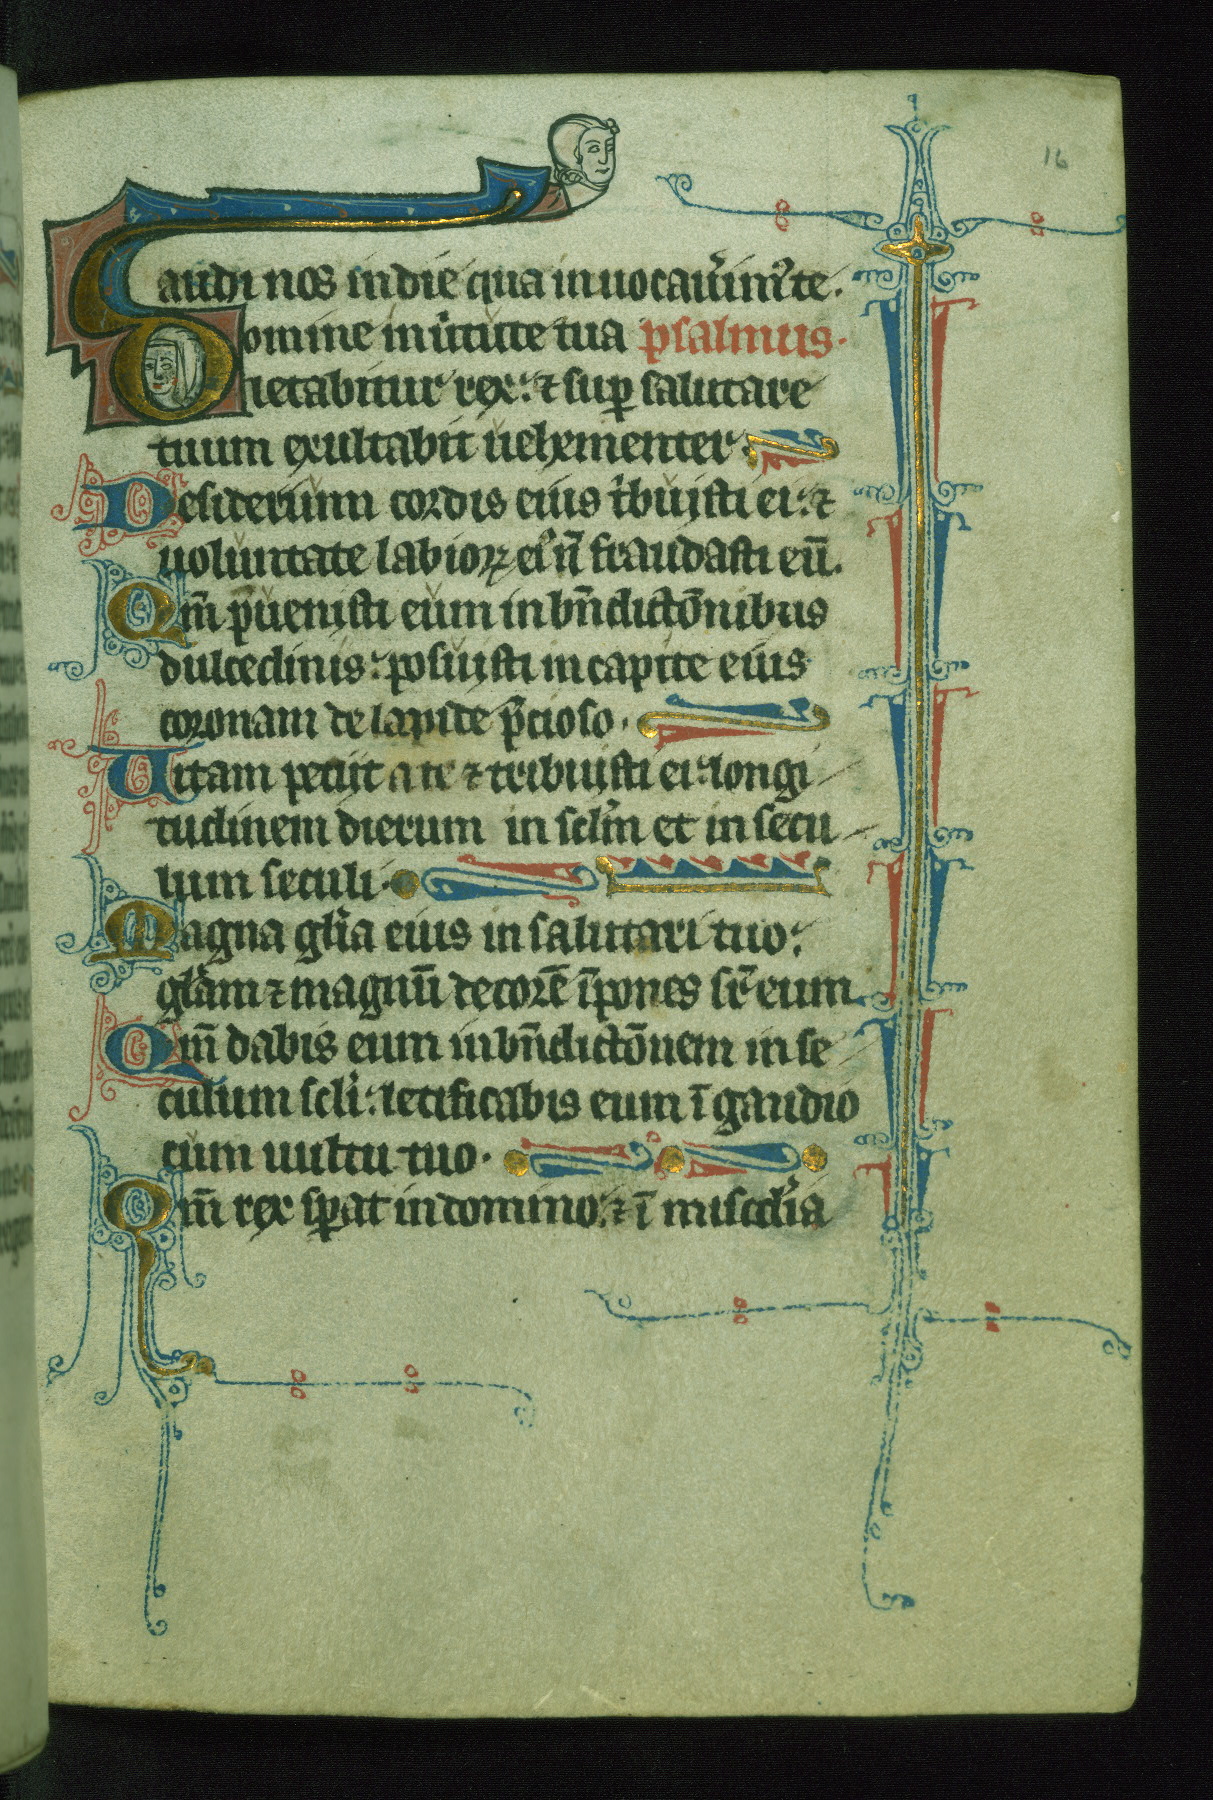 16
audi nos in die qua inuocaũim᷒ te.
Domine in ũtute tua psalmus.
letabitur rex: ⁊ suꝑ salutare
tuum exultabit uehementer
Desiderium cordis eius t̾buisti ei: ⁊
uoluntate labioꝝ ei᷒ ñ fraudasti eũ.
Qm̃ ꝓuenisti eum in bñdictõnibus
dulcedinis: posuisti in capite eius
coronam de lapide p̃cioso.
Uitam petiit a te ⁊ tribuisti ei: longi
tudinem dierum in sclm̃ et in secu
lum seculi.
Magna gl̃ia eius in salutari tuo:
gl̃am ⁊ magnũ decorẽ ĩpones sr̃ eum
Qm̃ dabis eum in bñdictõnem in se
culum scl̃i: letificabis eum ĩ gaudio
cum uultu tuo.
Qm̃ rex sꝑat in domino: ⁊ ĩ miscd̃ia